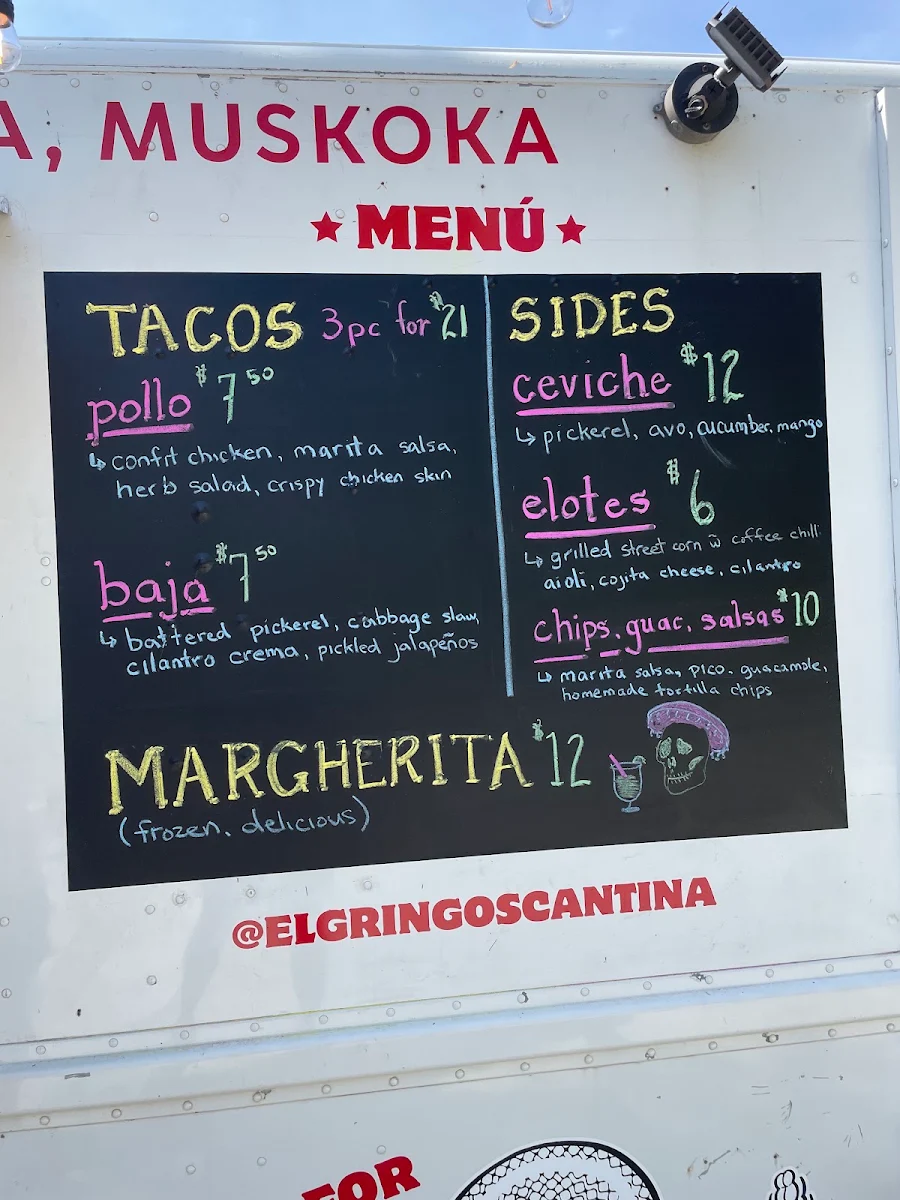 A, MUSKOKA
MENÚ
TACOS 3pc for $21
pollo $7 50
confit chicken, marita salsa,
herb salad, crispy chicken skin
baja $7 50
battered pickerel, cabbage slaw,
cilantro crema, pickled jalapeños
SIDES
ceviche $12
pickerel, avo, cucumber, mango
elotes $6
grilled street corn w̃ coffee chili
aioli, cojita cheese, cilantro
chips, guac, salsas $10
marita salsa, pico, guacamole,
homemade tortilla chips
MARGHERITA $12
(frozen, delicious)
@ELGRINGOSCANTINA
FOR